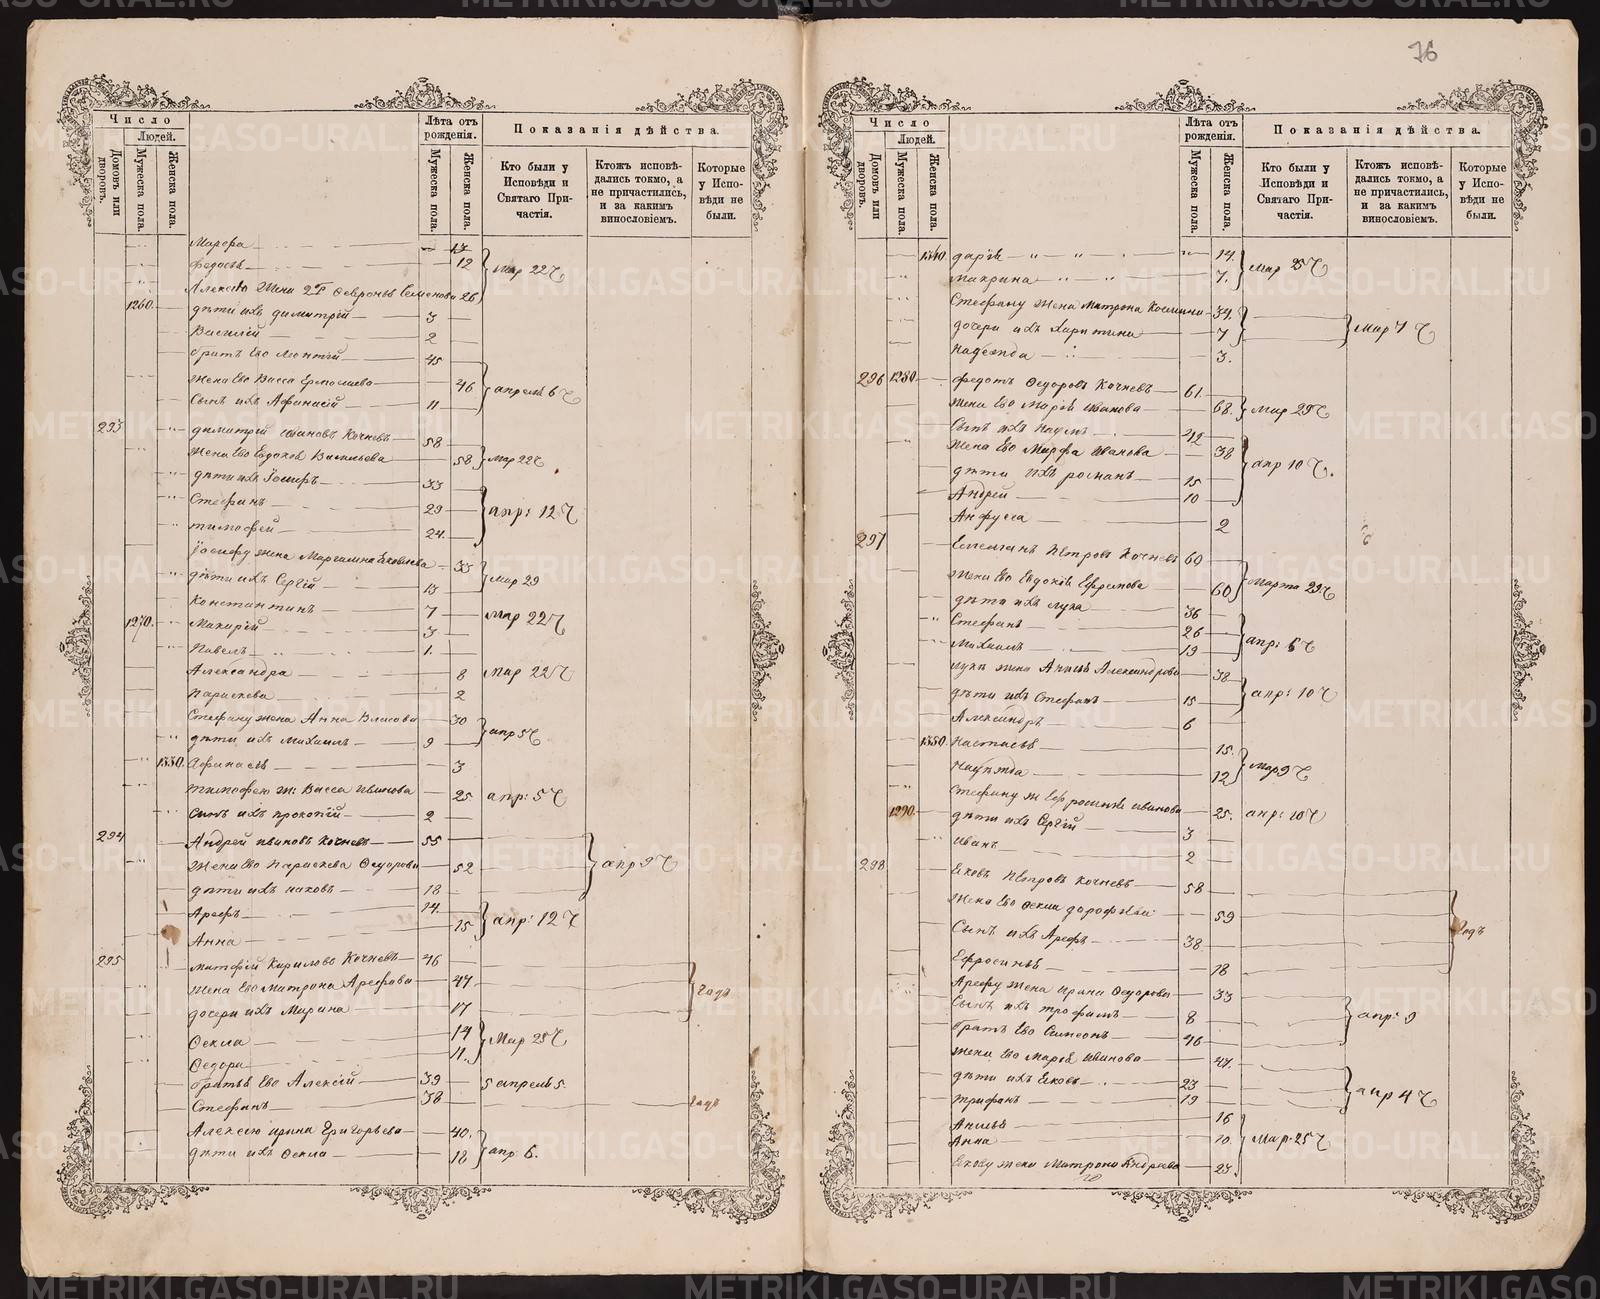 76
Число
Людей.
Домовъ или дворовъ.
Мужеска пола.
Женска пола.
Лѣта отъ рожденія.
Мужеска пола.
Женска пола.
Показанія дѣйства.
Кто были у Исповѣди и Святаго Причастія.
Ктожъ исповѣдались токмо, а не причастились, и за какимъ винословіемъ.
Которые у Исповѣди не были.
Марфа 13
Федосья 12 Мар 22
Алексѣя жена 2 Февронья Семенова 26
1260. дѣти ихъ Димитрій 3
Василій 2
братъ Его Леонтій 45
жена Его Васса Ермолаева 46 апреля 6
Сынъ ихъ Афанасій 11
293 Димитрій Ивановъ Кочневъ 58
жена Его Евдокія Васильева 58 Мар 22
дѣти ихъ Іосифъ 33
Стефанъ 29 апр: 12
Тимофей 24.
Іосифу жена 33
дѣти ихъ Сергій 13 Мар 29
Константинъ 7 Мар 22
1270. Макарій 3
Павелъ 1.
Александра 8 Мар 22
Параскева 2
Стефану жена Анна Власова 30
дѣти ихъ Михаилъ 9 апр 5
1330. Афанасья 3
Тимофею ж: Васса Иванова 25 апр: 5
сынъ ихъ Прокопій 2
294 Андрей Ивановъ Кочневъ 55
жена Его Параскева Федорова 52 апр 9
дѣти ихъ Иаковъ 18
Арефъ 14.
15 апр: 12
Анна
295 Матфій Кириловъ Кочневъ 46
жена Его Матрона Арефова 47
дочери ихъ Марина 17
Фекла 14 Мар 25
Федора 11.
братья Его Алексій 39 5 апреля 5.
Стефанъ 38
Алексѣю Ирина Григорьева 40.
дѣти ихъ Фекла 18 апр. 6.
Число
Людей.
Домовъ или дворовъ.
Мужеска пола.
Женска пола.
Лѣта отъ рожденія.
Мужеска пола.
Женска пола.
Показанія дѣйства.
Кто были у Исповѣди и Святаго Причастія.
Ктожъ исповѣдались токмо, а не причастились, и за какимъ винословіемъ.
Которые у Исповѣди не были.
1340 Дарія 14. Мар 25
Макрина 7.
Стефану жена Матрона 34.
дочери ихъ Харитина 7 Мар 7
Надежда 3.
296 1280. Федотъ Федоровъ Кочневъ 61.
жена Его Марія Иванова 68. Мар 29
Сынъ ихъ Наумъ 42
жена Его Марфа Иванова 38 апр 10
дѣти ихъ Романъ 15
Андрей 10
Анфуса 2
297 Емелианъ Петровъ Кочневъ 60
жена Его Евдокія Ефремова 60 Марта 29
дѣти ихъ Лука 36
Стефанъ 26 апр: 6
Михаилъ 19
Луки жена Анна Александрова 38
дѣти ихъ Стефанъ 15 апр: 10
Александръ 6
1350. Настасья 15.
12 Мар 9
Стефану ж Ефросинія Иванова 25. апр: 10
1290. дѣти ихъ Сергій 3
Иванъ 2
298 Яковъ Петровъ Кочневъ 58
жена Его Фекла Дорофѣева 59
Сынъ ихъ Арефъ 38
Ефросинья 18
Арефу жена Ирина Федорова 33
Сынъ ихъ Трофимъ 8 апр: 9
братъ Его Симеонъ 46
жена Его Марія Иванова 47.
дѣти ихъ Яковъ 23 апр 4
Трифанъ 19
16
Анна 10. Мар. 25
Якову жена Матрона Андреева 23.